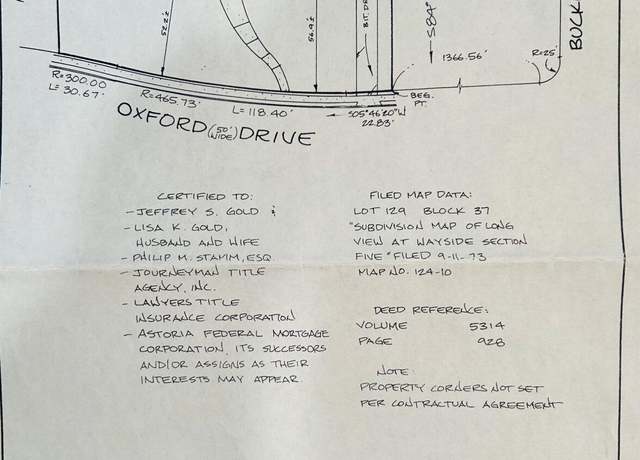 52.2'±
56.9'±
BIT. DR
S84°
1366.56'
R=25'
BUCK
R=300.00
L=30.67'
R=465.73'
L=118.40'
BEG.
PT.
S05°46'20"W
22.83'
OXFORD (50' WIDE) DRIVE
CERTIFIED TO:
- JEFFREY S. GOLD &
- LISA K. GOLD,
HUSBAND AND WIFE
- PHILIP M. STAMM, ESQ.
- JOURNEYMAN TITLE
AGENCY, INC.
- LAWYERS TITLE
INSURANCE CORPORATION
- ASTORIA FEDERAL MORTGAGE
CORPORATION, ITS SUCCESSORS
AND/OR ASSIGNS AS THEIR
INTERESTS MAY APPEAR.
FILED MAP DATA:
LOT 129 BLOCK 37
"SUBDIVISION MAP OF LONG
VIEW AT WAYSIDE SECTION
FIVE" FILED 9-11-73
MAP NO. 124-10
DEED REFERENCE:
VOLUME 5314
PAGE 928
NOTE:
PROPERTY CORNERS NOT SET
PER CONTRACTUAL AGREEMENT